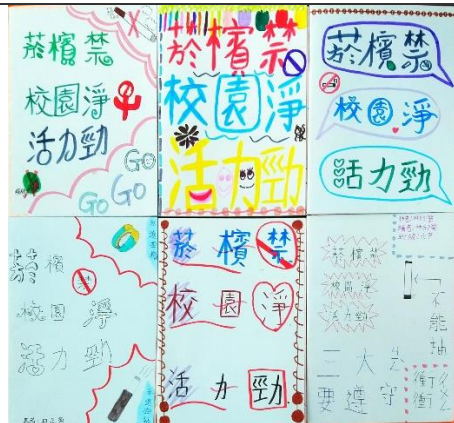 菸檳禁
校園淨
活力勁
Go
Go
Go
菸檳禁
校園淨
活力勁
菸檳禁
校園淨
活力勁
菸檳禁
校園淨
活力勁
菸檳禁
校園淨
活力勁
菸檳禁
校園淨
活力勁
不能抽
二大先
要遵守
衝衝